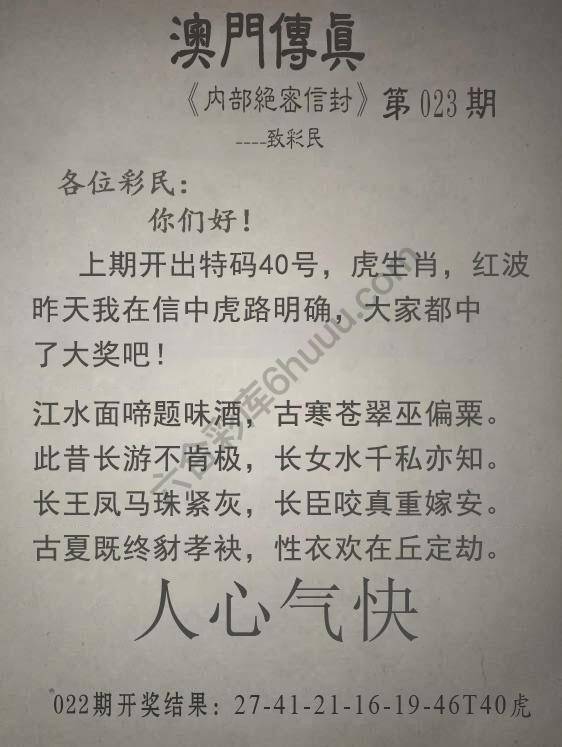 澳門傳眞
《内部絕密信封》第023期
----致彩民
各位彩民：
你们好！
上期开出特码40号，虎生肖，红波
昨天我在信中虎路明确，大家都中
了大奖吧！
江水面啼题味酒，古寒苍翠巫偏粟。
此昔长游不肯极，长女水千私亦知。
长王凤马珠紧灰，长臣咬真重嫁安。
古夏既终豺孝袂，性衣欢在丘定劫。
人心气快
022期开奖结果：27-41-21-16-19-46T40虎
六合彩库6huuu.com